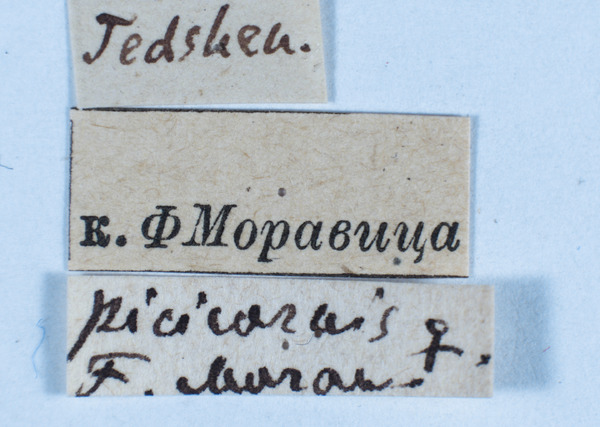 Tedshen.
к. Ф Моравица
picicornis ♀.
F. Moraw.